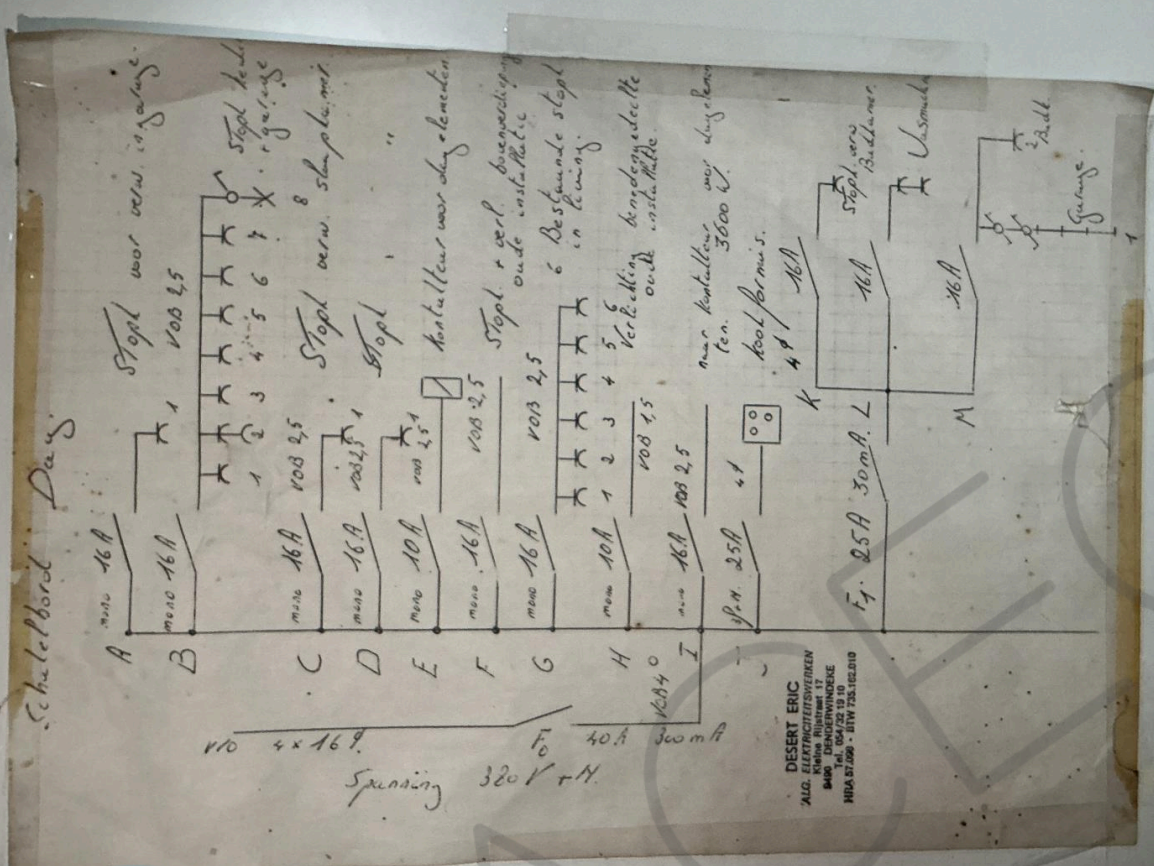 Schakelbord Dag.
A mono 16A
Stopk voor verw. ingang.
1 VOB 2,5
B mono 16A
1 2 3 4 5 6 7 8
Stopk
+ garage
C mono 16A VOB 2,5
Stopk verw. slaapkamer.
D mono 16A VOB 2,5 1
Stopk " "
E mono 10A VOB 2,5 1
Kontakteur voor dagelementen.
F mono 16A VOB 2,5
Stopk. + verl. bovenverdieping
oude installatie
G mono 16A VOB 2,5
1 2 3 4 5 6
6 Bestaande stopk
in leiving.
H mono 10A VOB 1,5
Verlichting benedengedeelte
oude installatie.
I mono 16A VOB 2,5
naar kontakteur voor dagelemen
ten. 3600 W.
J 3P+N. 25A 4⌀
kookfornuis.
4⌀
K 16A
Stopk. verw
Badkamer.
F1. 25A 30mA. L
16A
Wasmach
M 16A
2 Badk.
Garage.
1
VVB 4 x 16⌀.
F0 40A 300mA
VOB 4⌀
Spanning 380V + N.
DESERT ERIC
ALG. ELEKTRICITEITSWERKEN
Kleine Rijstraat 17
9490 DENDERWINDEKE
Tel. 054/32 19 10
HRA 57.090 - BTW 735.162.010